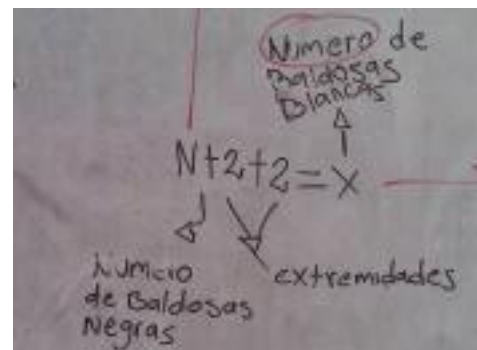 Numero de
Baldosas
Blancas
N+2+2=X
Numero
de Baldosas
Negras
extremidades